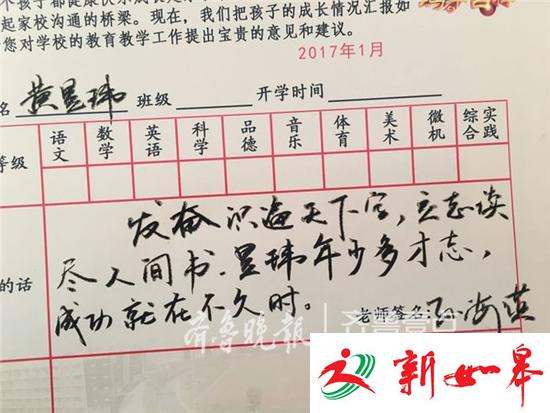 个孩子都健康快乐成长是
起家校沟通的桥梁。现在,我们把孩子的成长情况汇报如
您对学校的教育教学工作提出宝贵的意见和建议。
2017年1月
名 黄昱玮 班级 开学时间
等级 语文 数学 英语 科学 品德 音乐 体育 美术 微机 综合实践
发奋识遍天下字,立志读
尽人间书.昱玮年少多才志,
的话
成功就在不久时。
老师签名: 海英
齐鲁晚报 齐鲁壹点
新如皋